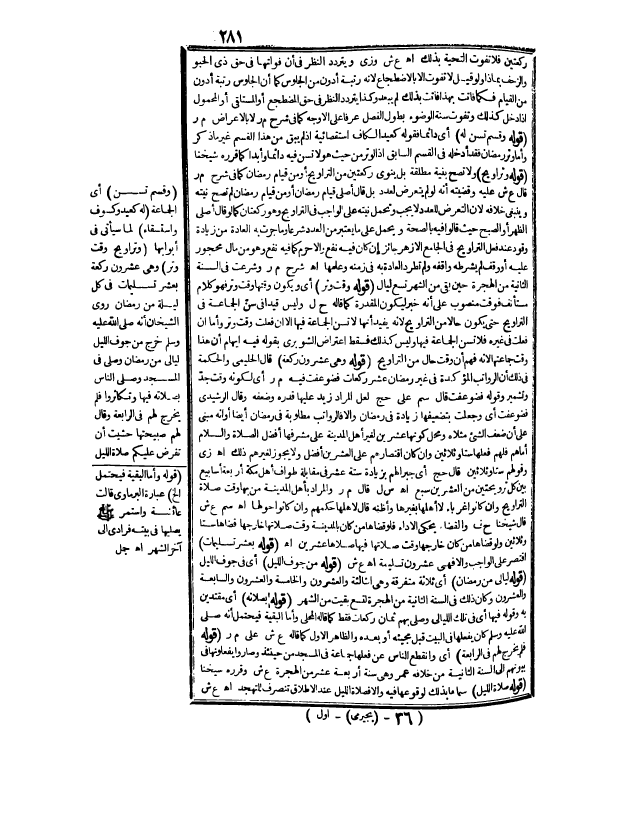 ٢٨١
ركعتين فلا تفوت التحية بذلك اه ع ش وزى ويتردد النظر فى أن فواتها فى حق ذى الحبو
والزحف بماذا ولو قيل لا تفوت الا بالاضطجاع لانه رتبة أدون من الجلوس كما أن الجلوس رتبة أدون
من القيام فكما فاتت بهذا فاتت بذلك لم يبعد وكذا يتردد النظر فى حق المضطجع أو المستلقى أو المحمول
اذا دخل كذلك وتفوت سنة الوضوء بطول الفصل عرفا على الاوجه كما فى شرح م ر لا بالاعراض م ر
(قوله وقسم تسن له) أى دائما فقوله كعيد الكاف استقصائية اذ لم يبق من هذا القسم غير ماذكر
وأما وتر رمضان فقد أدخله فى القسم السابق اذ الوتر من حيث هو لا تسن فيه دائما وأبدا كما قرره شيخنا
(قوله وتراويح) ولا تصح بنية مطلقة بل ينوى ركعتين من التراويح أو من قيام رمضان كما فى شرح م ر
قال ع ش عليه وقضيته أنه لو لم يتعرض لعدد بل قال أصلى قيام رمضان أو من قيام رمضان لم تصح نيته
وينبغى خلافه لان التعرض للعدد لا يجب وتحمل نيته على الواجب فى التراويح وهو ركعتان كما لو قال أصلى
الظهر أو الصبح حيث قالوا فيه بالصحة و يحمل على ما يعتبر من العدد شرعا وما جرت به العادة من زيادة
وقود عند فعل التراويح فى الجامع الازهر جائز إن كان فيه نفع والا حرم كما فيه نفع وهو من مال محجور
عليه أو وقف لم يشرطه واقفه ولم تطرد العادة به فى زمنه وعلمها اه شرح م ر وشرعت فى السنة
الثانية من الهجرة حين بقى من الشهر تسع ليال (قوله وقت وتر) أى ويكون وقتها وقت وتر فهو كلام
مستأنف فوقت منصوب على أنه خبر ليكون المقدرة كما قاله ح ل وليس قيدا فى سنّ الجماعة فى
التراويح حتى يكون حالا من التراويح لانه يفيد أنها لا تسن الجماعة فيها الا ان فعلت وقت وتر وأما ان
فعلت فى غيره فلا تسن الجماعة فيها وليس كذلك فسقط اعتراض الشو برى بقوله فيه ايهام أن هذا
وقت جماعتها لانه فهم أن وقت حال من التراويح (قوله وهى عشرون ركعة) قال الحليمى والحكمة
فى ذلك أن الرواتب المؤكدة فى غير رمضان عشر ركعات فضوعفت فيه م ر أى لكونه وقت جدّ
وتشمير وقوله فضوعفت قال سم على حج لعل المراد زيد عليها قدره وضعفه وقال الرشيدى
فضوعفت أى وجعلت بتضعيفها زيادة فى رمضان والا فالرواتب مطلوبة فى رمضان أيضا أو أنه مبنى
على أن ضعف الشئ مثلاه ومحل كونها عشرين لغير أهل المدينة على مشرفها أفضل الصلاة والسلام
أما هم فلهم فعلها ستا وثلاثين وان كان اقتصارهم على العشرين أفضل ولا يجوز لغيرهم ذلك اه زى
وقولهم ستا وثلاثين قال حج أى جبرا لهم بزيادة ستة عشر فى مقابلة طواف أهل مكة أربعة أسابيع
بين كل ترويحتين من العشرين سبع اه سول قال م ر والمراد بأهل المدينة من بها وقت صلاة
التراويح وان كانوا غرباء لا أهلها بغيرها وأظنه قال لاهلها حكمهم وان كانوا حولها اه سم ع ش
قال شيخنا ح ف والقضاء يحكى الاداء فلو قضاها من كان بالمدينة وقت صلاتها خارجها قضاها ستا
وثلاثين ولو قضاها من كان خارجها وقت صلاتها فيها صلاها عشرين اه (قوله بعشر تسليمات)
اقتصر على الواجب والا فهى عشرون تسليمة اه ع ش (قوله من جوف الليل) أى فى جوف الليل
(قوله ليالى من رمضان) أى ثلاثة متفرقة وهى ثالثة والعشرون والخامسة والعشرون والسابعة
والعشرون وكان ذلك فى السنة الثانية من الهجرة لتسع بقيت من الشهر (قوله بصلاته) أى مقتدين
به وقوله فيها أى فى تلك الليالى وصلى بهم ثمان ركعات فقط كما قاله المحلى وأما البقية فيحتمل أنه صلى
الله عليه وسلم كان يفعلها فى البيت قبل مجيئه أو بعده والظاهر الاول كما قاله ع ش على م ر (قوله
فلم يخرج لهم فى الرابعة) أى وانقطع الناس عن فعلها جماعة فى المسجد من حينئذ وصاروا يفعلونها فى
بيوتهم الى السنة الثانية من خلافه عمر وهى سنة أربعة عشر من الهجرة ع ش وقرره شيخنا
(قوله صلاة الليل) سماها بذلك لوقوعها فيه والا فصلاة الليل عند الاطلاق تنصرف للتهجد اه ع ش
(وقسم تسن) أى
الجماعة (له كعيد وكسوف
واستسقاء) لما سيأتى فى
أبوابها (وتراويح وقت
وتر) وهى عشرون ركعة
بعشر تسليمات فى كل
ليلة من رمضان روى
الشيخان أنه صلى الله عليه
وسلم خرج من جوف الليل
ليالى من رمضان وصلى فى
المسجد وصلى الناس
بصلاته فيها وتكاثروا فلم
يخرج لهم فى الرابعة وقال
لهم صبيحتها خشيت أن
تفرض عليكم صلاة الليل
(قوله وأما البقية فيحتمل
الخ) عبارة البرماوى قالت
عائشة واستمر ﷺ
يصليها فى بيته فرادى الى
آخر الشهر اه جمل
( ٣٦ - (بجيرى) - اول )